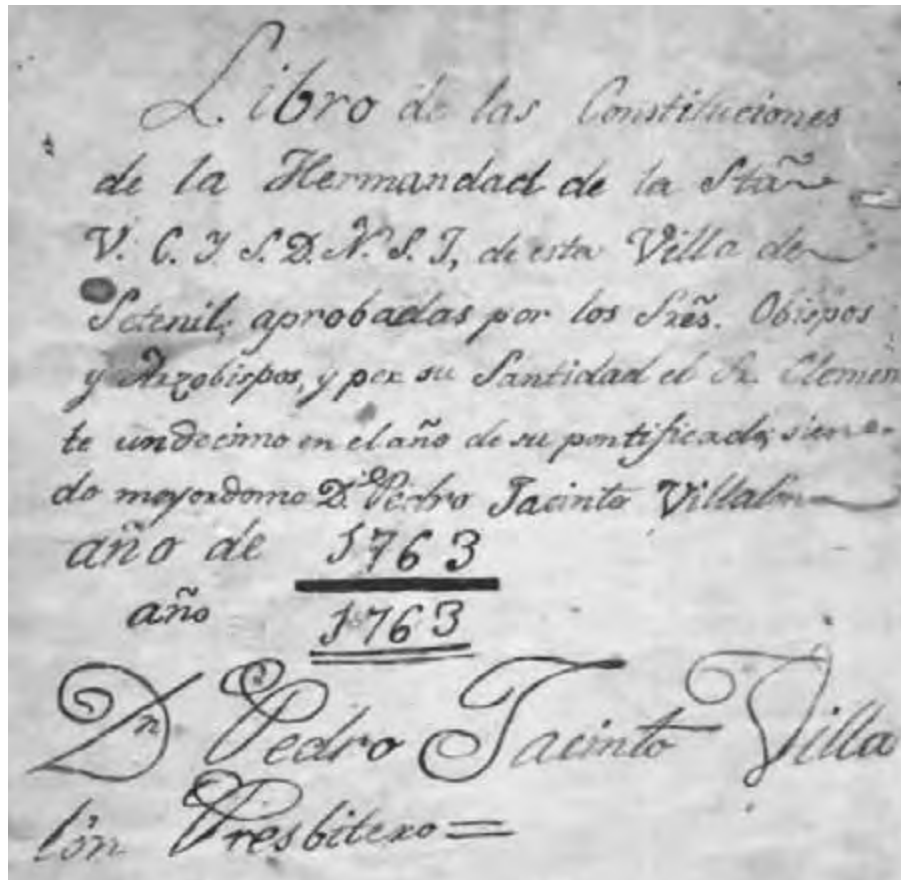 Libro de las Constituciones
de la Hermandad de la Stã
V. C. Y S. D. N. S. J, de esta Villa de
Setenil, aprobadas por los Sres. Obispos
y Arzobispos, y por su Santidad el Sr. Clemen
te undecimo en el año de su pontificado, sien-
do mayordomo Dn. Pedro Jacinto Villalon
año de 1763
año 1763
Dn Pedro Jacinto Villa
lón Presbitero=